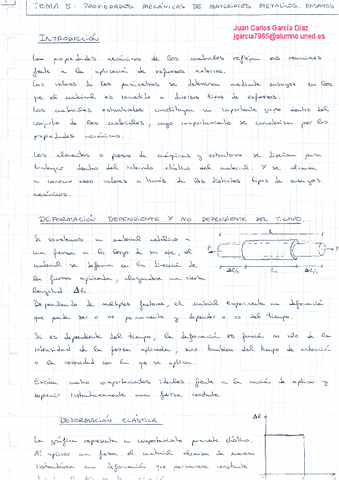 TEMA 5: PROPIEDADES MECÁNICAS DE MATERIALES METÁLICOS. ENSAYOS
Juan Carlos García Díaz
jgarcia7965@alumno.uned.es
INTRODUCCIÓN
Las propiedades mecánicas de los materiales reflejan sus reacciones
frente a la aplicación de esfuerzos externos.
Los valores de los parámetros se determinan mediante ensayos en los
que el material es sometido a diversos tipos de esfuerzos.
Los materiales estructurales constituyen un importante grupo dentro del
conjunto de los materiales, cuyo comportamiento se caracteriza por las
propiedades mecánicas.
Los elementos o piezas de máquinas y estructuras se diseñan para
trabajar dentro del intervalo elástico del material. Y se
a conocer esos valores a través de los distintos tipos de ensayos
mecánicos.
DEFORMACIÓN DEPENDIENTE Y NO DEPENDIENTE DEL TIEMPO.
Si sometemos un material metálico a
una fuerza a lo largo de su eje, el
material se deforma en la dirección de
la fuerza aplicada, alargándose una cierta
longitud Δl.
Dependiendo de múltiples factores, el material experimenta una deformación
que puede ser o no permanente y depender o no del tiempo.
Si es dependiente del tiempo, la deformación es función no sólo de la
intensidad de la fuerza aplicada, sino también del tiempo de actuación
o la velocidad con la que se aplica.
Existen cuatro comportamientos ideales frente a la acción de aplicar y
suprimir instantáneamente una fuerza constante.
DEFORMACIÓN ELÁSTICA
Δl
La gráfica representa un comportamiento puramente elástico.
Al aplicar una fuerza el material alcanza de manera
instantánea una deformación que permanece constante